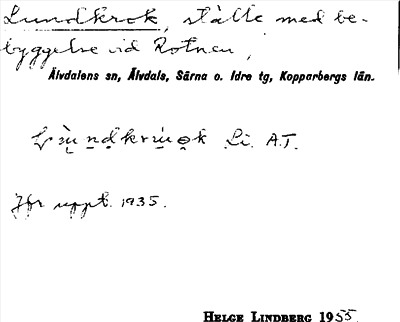 Lundkrok, ställe med be-
byggelse vid Rotnen,
Älvdalens sn, Älvdals, Särna o. Idre tg, Kopparbergs län.
Li. A.T.
Jfr uppt. 1935.
HELGE LINDBERG 1955